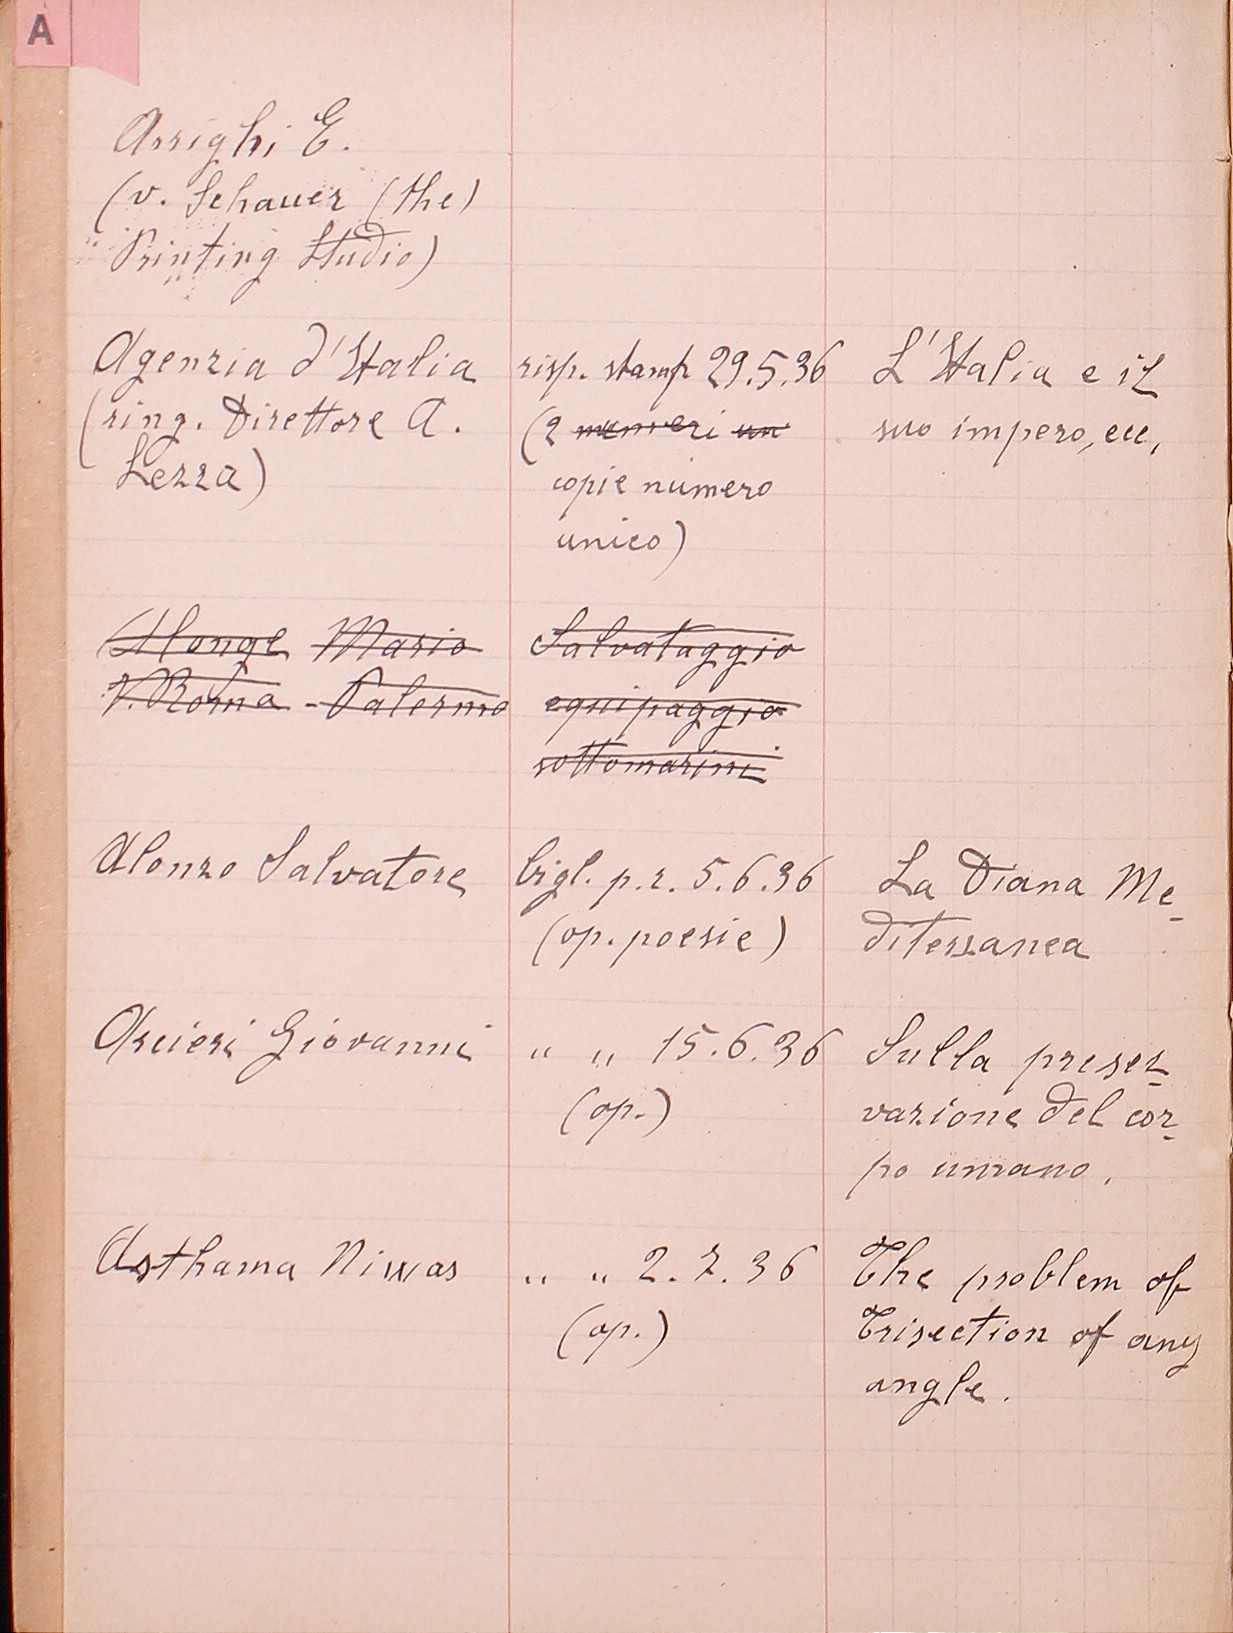 A
Arrighi E.
(v. Schauer (the)
" Printing Studio)
Agenzia d'Italia
(ring. Direttore A.
Lezza)
risp. stamp 29.5.36
(2 numeri un
copie numero
unico)
L'Italia e il
suo impero, ecc,
Alonge Mario
V. Roma - Palermo
Salvataggio
equipaggio
sottomarini
Alonzo Salvatore
bigl. p.r. 5.6.36
(op. poesie)
La Diana Me-
diterranea
Arcieri Giovanni
" " 15.6.36
(op.)
Sulla preser-
vazione del cor-
po umano.
Asthama Niwas
" " 2.7.36
(op.)
The problem of
Trisection of any
angle.